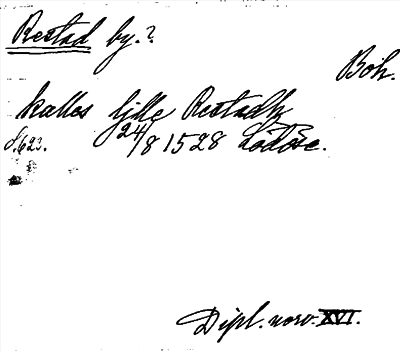 Restad by.?
Boh.
kallas lille Restadh
s. 623. 24/8 1528 Lödöse.
Dipl. norv. XVI.